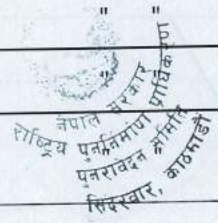 " "
"
नेपाल सरकार
राष्ट्रिय पुनर्निर्माण प्राधिकरण
पुनरावेदन समिति
सिंहदरवार, काठमाडौं